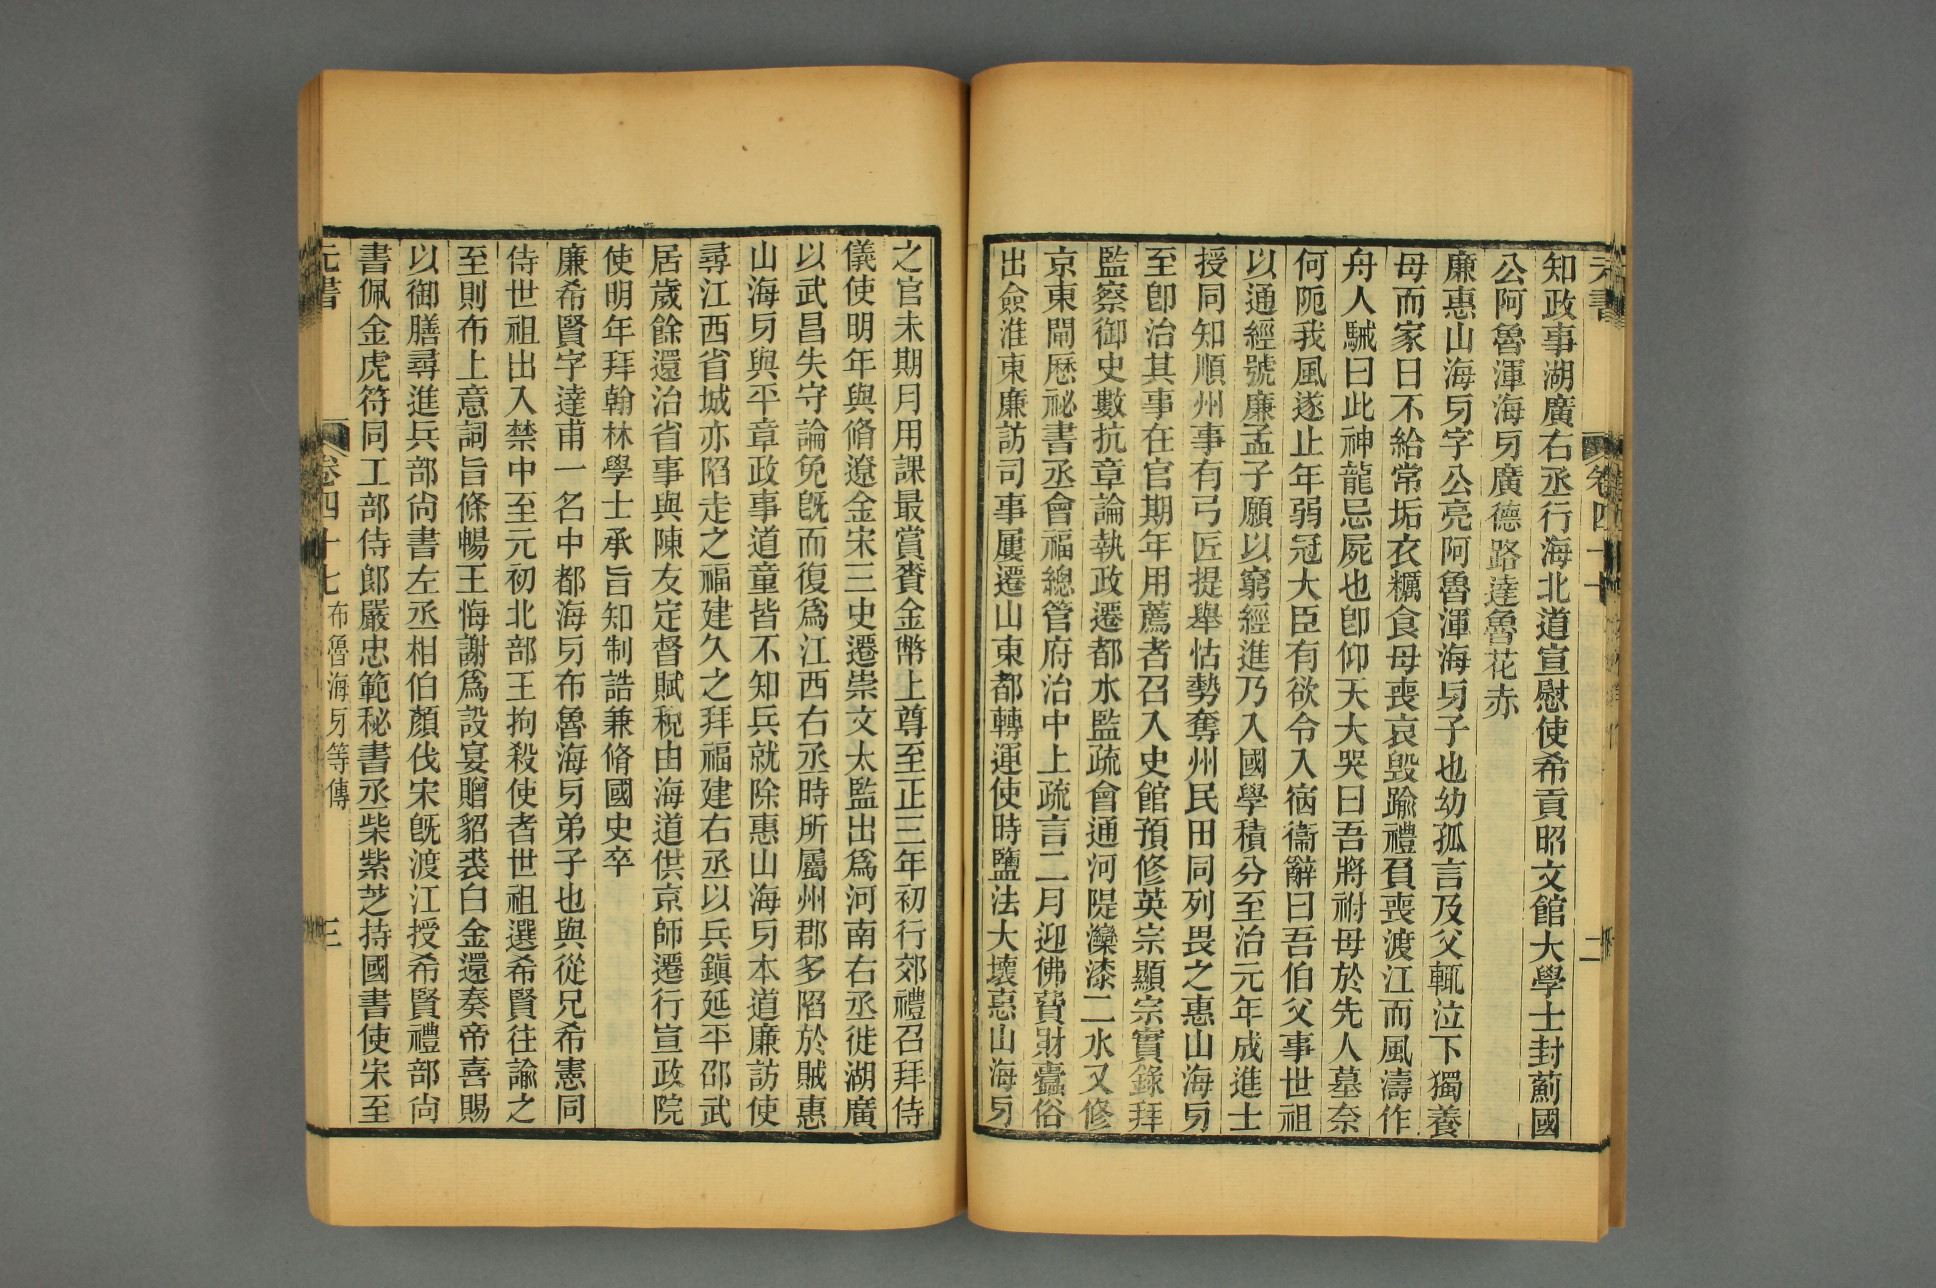 元書
卷四十七
二
知政事湖廣右丞行海北道宣慰使希貢昭文館大學士封薊國
公阿魯渾海牙廣德路達魯花赤
廉惠山海牙字公亮阿魯渾海牙子也幼孤言及父輒泣下獨養
母而家日不給常垢衣糲食母喪哀毀踰禮負喪渡江而風濤作
舟人駴曰此神龍忌屍也卽仰天大哭曰吾將祔母於先人墓奈
何阨我風遂止年弱冠大臣有欲令入宿衞辭曰吾伯父事世祖
以通經號廉孟子願以窮經進乃入國學積分至治元年成進士
授同知順州事有弓匠提舉怙勢奪州民田同列畏之惠山海牙
至卽治其事在官期年用薦者召入史館預修英宗顯宗實錄拜
監察御史數抗章論執政遷都水監疏會通河隄灤漆二水又修
京東閘歷祕書丞會福總管府治中上疏言二月迎佛費財蠹俗
出僉淮東廉訪司事屢遷山東都轉運使時鹽法大壞惠山海牙
之官未期月用課最賞賚金幣上尊至正三年初行郊禮召拜侍
儀使明年與脩遼金宋三史遷崇文太監出爲河南右丞徙湖廣
以武昌失守論免旣而復爲江西右丞時所屬州郡多陷於賊惠
山海牙與平章政事道童皆不知兵就除惠山海牙本道廉訪使
尋江西省城亦陷走之福建久之拜福建右丞以兵鎮延平邵武
居歲餘還治省事與陳友定督賦稅由海道供京師遷行宣政院
使明年拜翰林學士承旨知制誥兼脩國史卒
廉希賢字達甫一名中都海牙布魯海牙弟子也與從兄希憲同
侍世祖出入禁中至元初北部王拘殺使者世祖選希賢往諭之
至則布上意詞旨條暢王悔謝爲設宴贈貂裘白金還奏帝喜賜
以御膳尋進兵部尙書左丞相伯顏伐宋旣渡江授希賢禮部尙
書佩金虎符同工部侍郞嚴忠範秘書丞柴紫芝持國書使宋至
元書
卷四十七
布魯海牙等傳
三